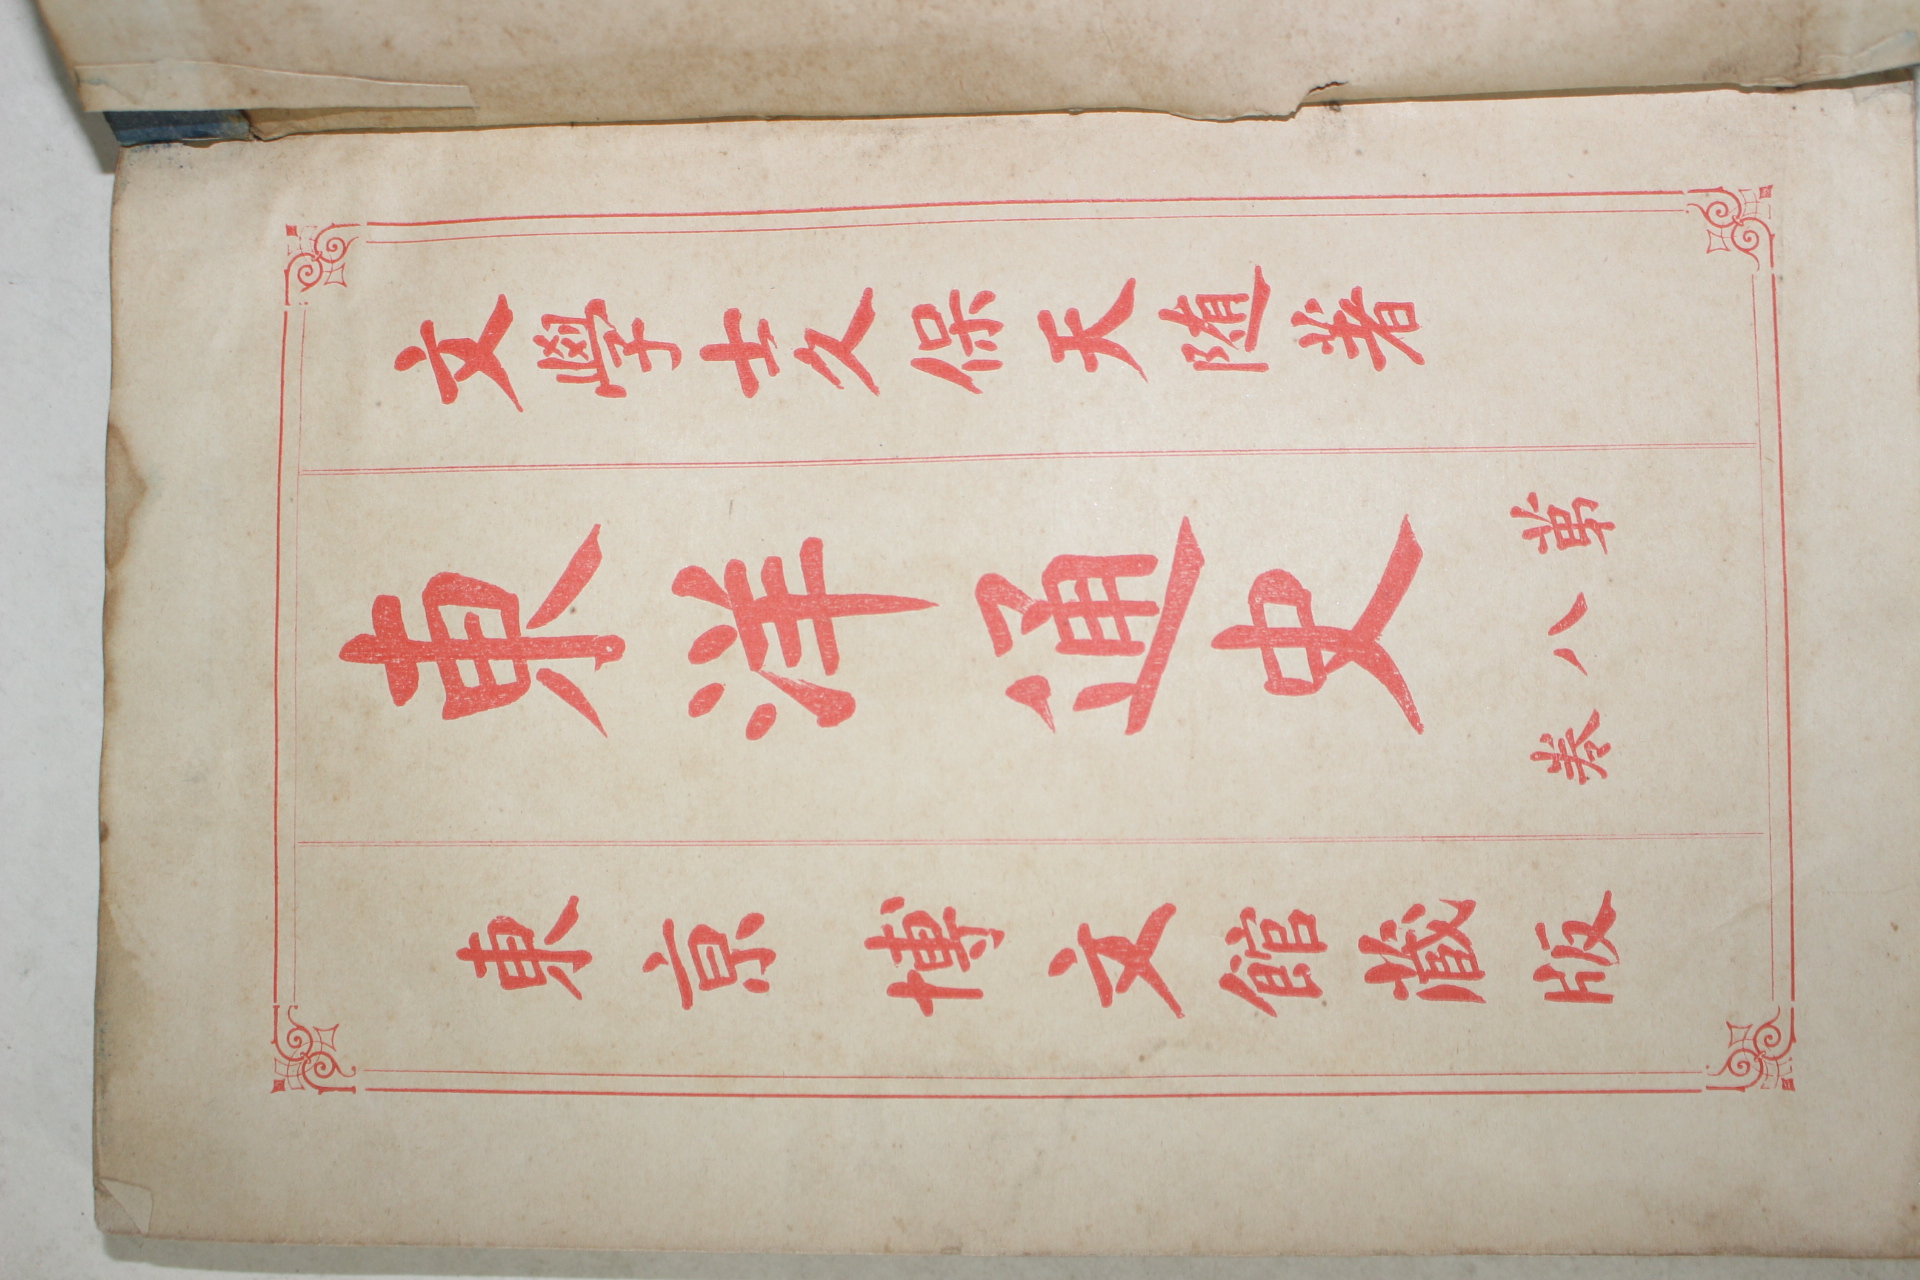 文學士久保天随著
東洋通史
第八卷
東京博文館蔵版